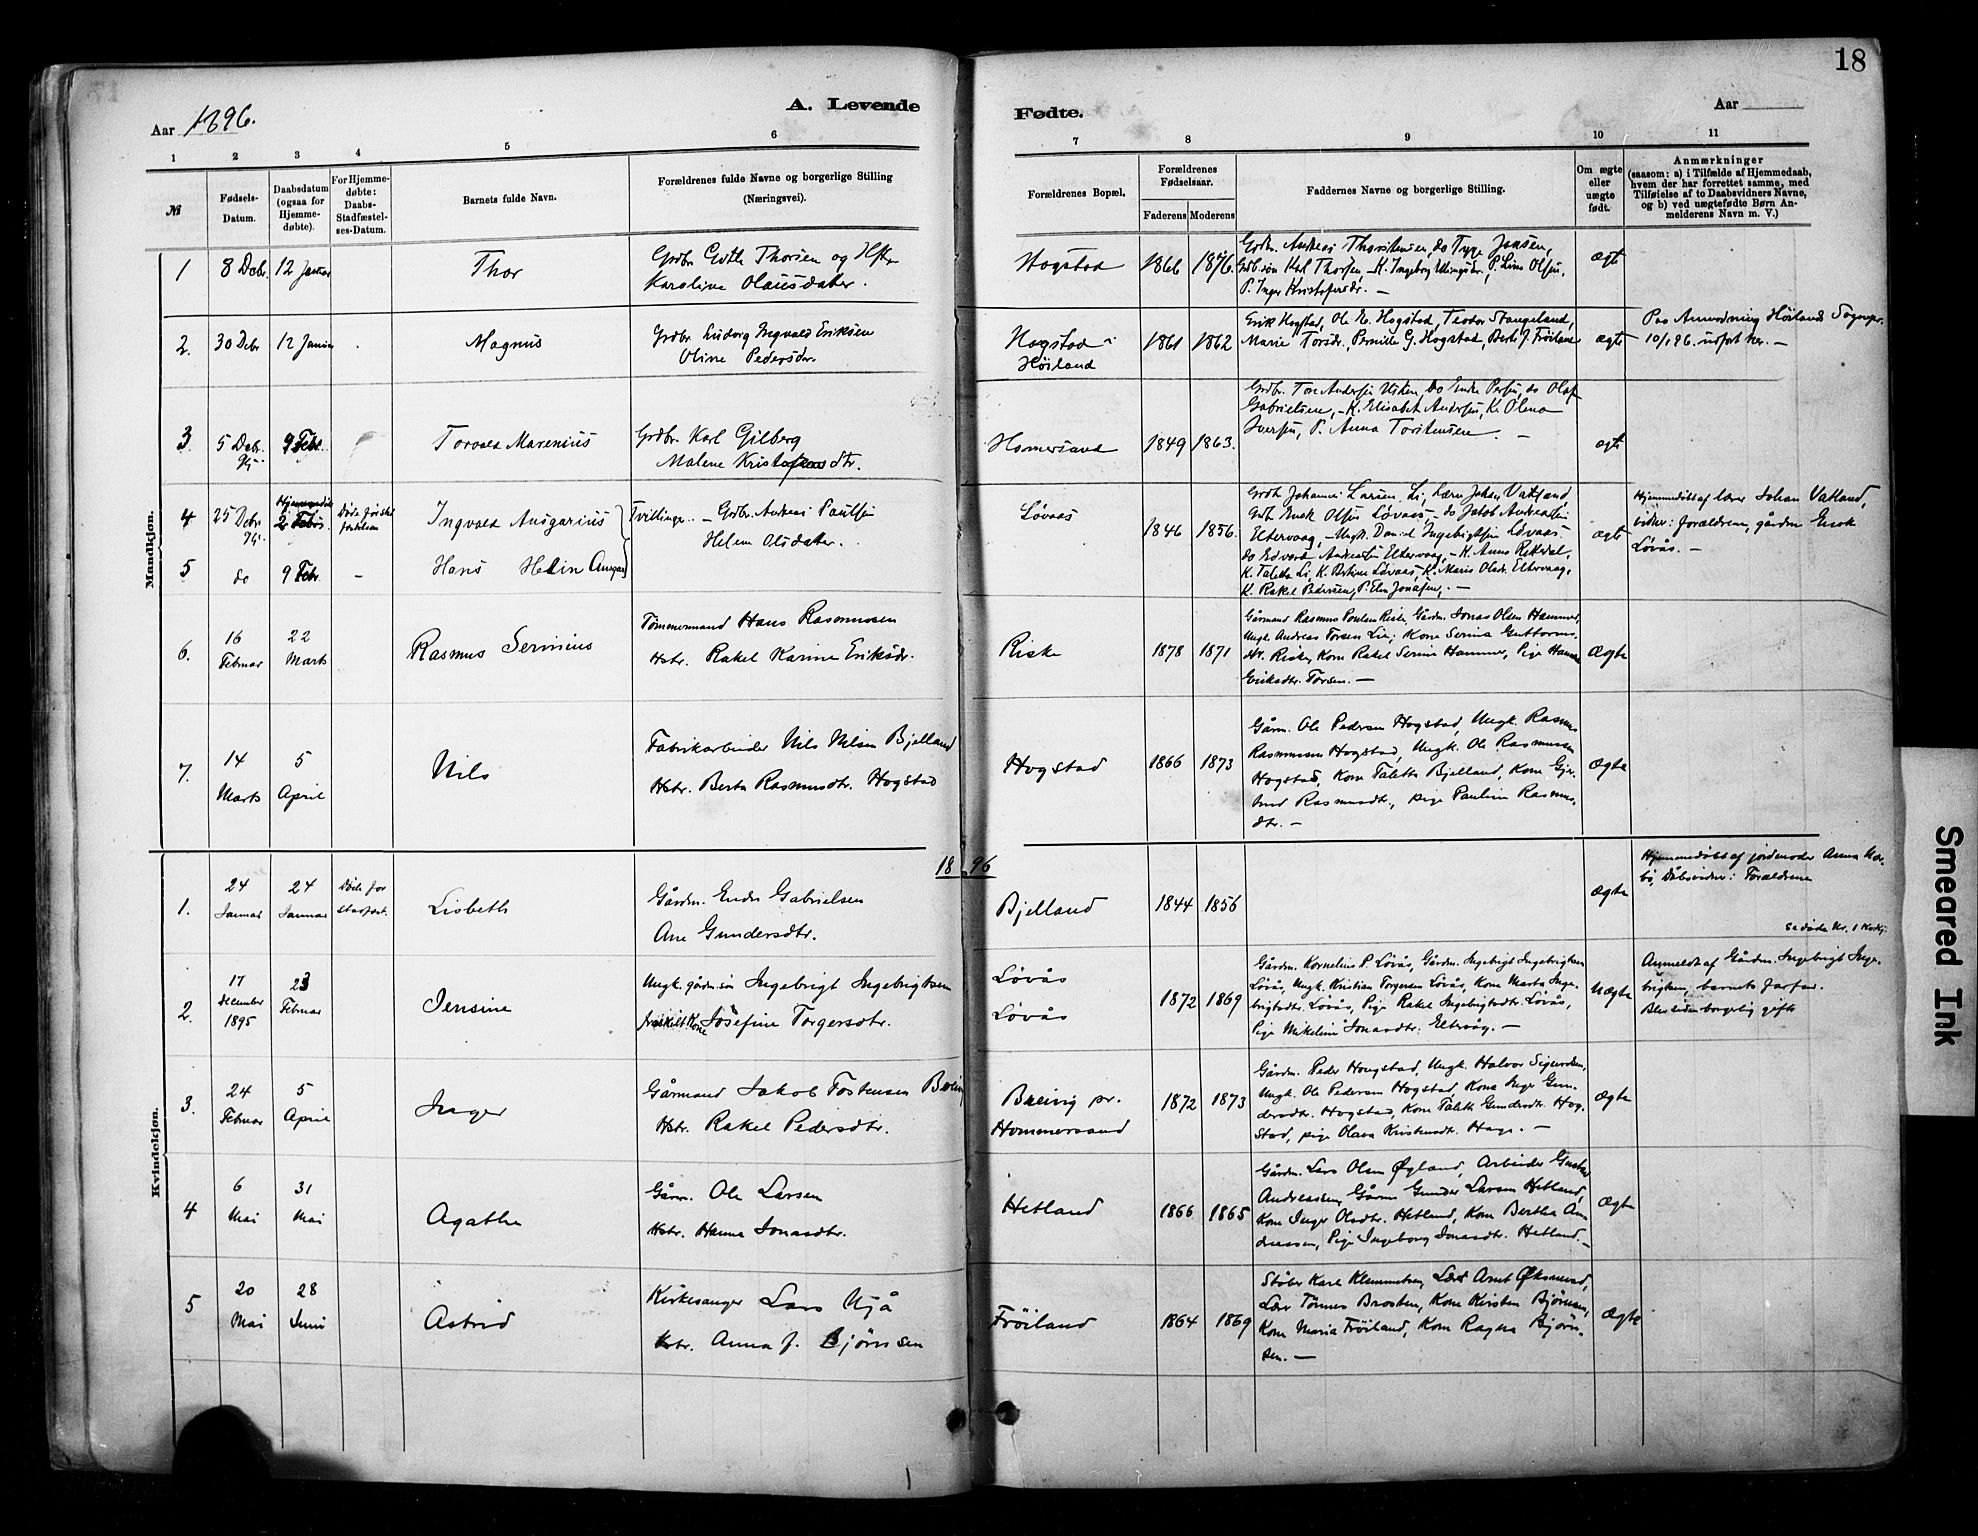 18
A. Levende
Fødte.
Aar 1896.
Aar
1 2 3 4 5 6 7 8 9 10 11
№
Fødsels-
Datum.
Daabsdatum
(ogsaa for
Hjemme-
døbte).
For Hjemme-
døbte:
Daabs-
Stadfæstel-
ses-Datum.
Barnets fulde Navn.
Forældrenes fulde Navne og borgerlige Stilling
(Næringsvei).
Forældrenes Bopæl.
Forældrenes
Fødselsaar.
Faderens Moderens
Faddernes Navne og borgerlige Stilling.
Om ægte
eller
uægte
født.
Anmærkninger
(saasom: a) i Tilfælde af Hjemmedaab,
hvem der har forrettet samme, med
Tilføielse af to Daabsvidners Navne,
og b) ved uægtefødte Børn An-
melderens Navn m. V.)
Mandkjøn.
1 8 Debr. 12 Januar Thor
Grdbr. Thorsen og Hstr.
Karoline Olausdater.
Hogstad 1866 1876. ægte
Grdbr. Andreas Thorstensen, do Jansen,
Karl Thorsen, K. Ingeborg P. Line Olsen,
P. Inger Kristofersdr. —
2. 30 Debr 12 Januar Magnus
Grdbr Ludvig Ingvald Eriksen
Oline Pedersdr.
Hogstad i
Høiland
1861 1862 ægte
Erik Hogstad, Ole N. Hogstad, Teodor Stangeland,
Marie Torsdr., Pernille G. Hogstad, Berte J. Frøiland
Paa Anvodning Høilands Sognepr.
10/1 96. udført her. —
3 5 Debr. 9 Febr. Torvald Marenius
Grdbr. Karl Gilberg
Malene Kristofersdtr.
Homersand 1849 1863. ægte
Grdbr. Tore Andersen do Endre Persen, do Olaf
Gabrielsen, K. Elisabet Andersen, K. Olena
Iversen, P. Anna Torstensen. —
4 25 Debr 2 Febr. Døde før
Ingvald Ansgarius
Tvillinge. — Grdbr. Andreas Paulsen
Helene Olsdater.
Løvaas 1846 1856. ægte
5 do 9 Febr. —
Hans Helin
Grdb. Johannes Larsen Li, Lærer Johan Vatland
Grdb Enok Olsen Løvaas — do Jakob Andreassen
Eltervaag, — Ungk. Daniel Ingebrigtsen Løvaas
do Edvard Andreassen Eltervaag, — K. Anna
K. Taletta Li, K. Bertine Løvaas, K. Maris Olsdr. Eltervaag,
K. Rakel Pedersen, P. Elen Jonasen, —
Hjemmedøbt af lærer Johan Vatland,
vidner: forældrene, gårdm Enok
Løvås. —
6. 16
Februar
22
Marts
Rasmus Serinius
Tømmermand Hans Rasmussen
Hstr. Rakel Karine Eriksdr.
Riske 1878 1871 Ægte
Gårmand Rasmus Poulsen Riske, Gårdm. Jonas Olsen Hammer,
Ungk. Andreas Torsen Lie, Kone Serina Guttorms-
dtr. Riske, Kone Rakel Serine Hammer, Pige Hanne
Eriksdtr. Torsen. —
7. 14
Marts
5
April
Nils
Fabrikarbeider Nils Nilsen Bjelland
Hstr. Berta Rasmusdtr. Hogstad
Hogstad 1866 1873 Ægte
Gårm. Ole Pedersen Hogstad, Ungk. Rasmus
Rasmussen Hogstad, Ungk. Ole Rasmussen
Hogstad, Kone Taletta Bjelland, Kone Gjer-
trud Rasmusdtr., pige Pauline Rasmus-
dtr. —
18 96
Kvindekjøn.
1. 24
Januar
24
Januar
Døde før
stadfæst.
Lisbeth
Gårdm. Endre Gabrielsen
Ane Gundersdtr.
Bjelland 1844 1856 Ægte
Hjemmedøbt af jordemoder Anna
Dåbsvidner: Forældrene
Se døde Nr. 1 Kvkj.
2. 17
December
1895
23
Februar
Jensine
Ungk. gårdm.søn Ingebrigt Ingebrigtsen
fraskilt Kone Josefine Torgersdtr.
Løvås
Løvås
1872 1869 Uægte
Gårdm. Kornelius P. Løvås, Gårdm. Ingebrigt Ingebrigtsen
Løvås, Ungk. Kristian Torgersen Løvås, Kone Marta Inge-
brigtsdtr. Løvås, Pige Rakel Ingebrigtsdtr. Løvås,
Pige Mikeline Jonasdtr. Eltervåg. —
Anmeldt af Gårdm. Ingebrigt Inge-
brigtsen, barnets farfar.
Blev siden borgelig gifte
3. 24
Februar
5
April
Inger
Gårmand Jakob Tostensen Breivig
Hstr. Rakel Pedersdtr.
Breivig pr.
Hommersand
1872 1873 Ægte
Gårdm. Peder Hougstad, Ungk. Halvor Sigurdsen,
Ungk. Ole Pedersen Hogstad, Kone Inger Gun-
dersdtr. Hogstad, Kone Taletta Gundersdtr. Hog-
stad, pige Olava Kristensdtr. Hage. —
4 6
Mai
31
Mai
Agathe
Gårm. Ole Larsen
Hstr. Hanna Jonasdtr.
Hetland 1866 1865 Ægte
Gårdm. Lars Olsen Øgland, Arbeider Gustav
Andreassen, Gårm Gunder Larsen Hetland,
Kone Inger Olsdtr. Hetland, Kone Bertha An-
dreassen, Pige Ingeborg Jonasdtr. Hetland. —
5 20
Mai
28
Juni
Astrid
Kirkesanger Lars Ujå
Hstr. Anna f. Bjørnsen
Frøiland 1864 1869 Ægte
Støber Karl Klemmetsen, Lærer Arnt Øksnevad,
Lærer Tønnes Brosten, Kone Kirsten Bjørnsen,
Kone Maria Frøiland, Kone Ragna Bjørn-
sen. —
Smeared Ink